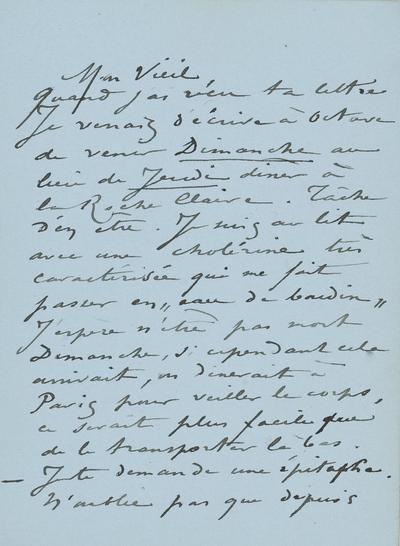 Mon Vieil
quand j'ai reçu ta lettre
Je venais d'écrire à Octave
de venir Dimanche au
lieu de Jeudi diner à
la Roche Claire. Tâche
d'en être. Je suis au lit
avec une cholérine très
caractérisée qui me fait
passer en „ eau de boudin „
J'espere n'être pas mort
Dimanche, si cependant cela
arrivait, on dinerait à
Paris pour veiller le corps,
ce serait plus facile que
de le transporter là bas.
– Je te demande une épitaphe.
N'oublie pas que depuis